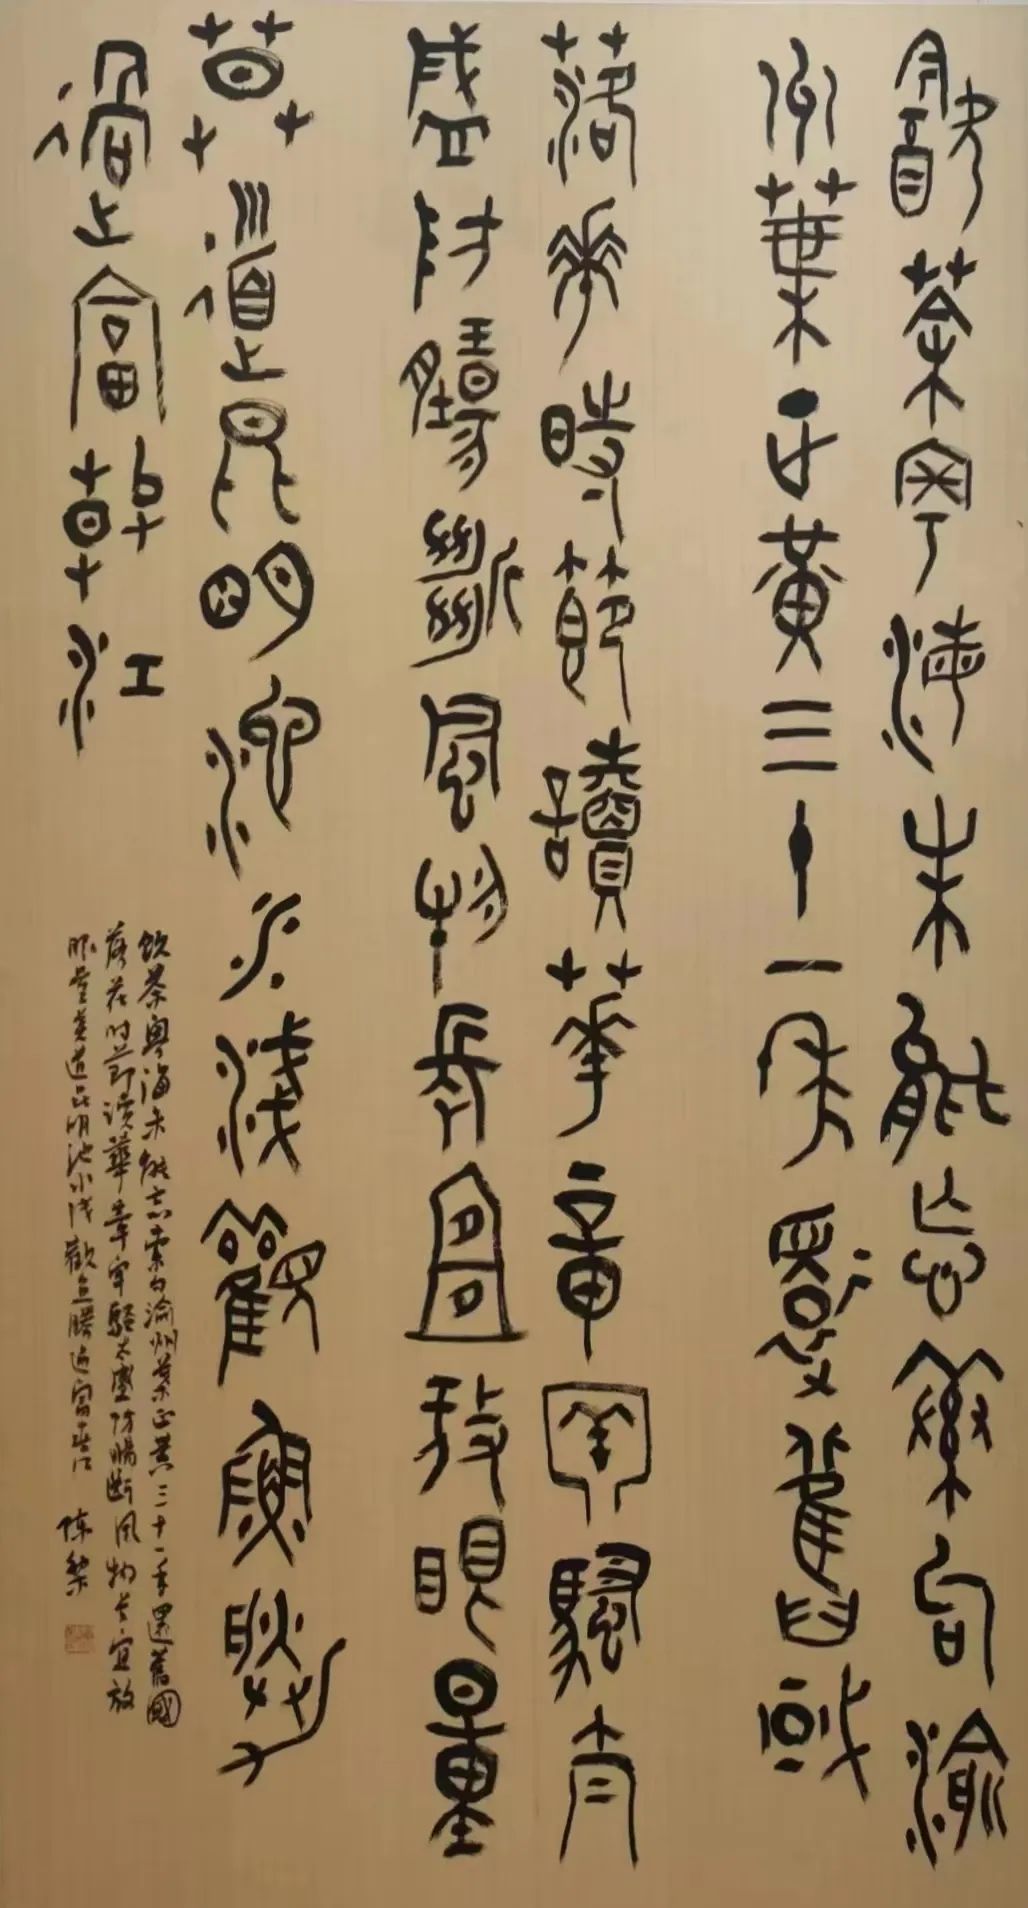 飲茶粵海未能忘索句渝
州葉正黃三十一年還舊國
落花時節讀華章牢騷太
盛防腸斷風物長宜放眼量
莫道昆明池水淺觀魚勝
過富春江
飲茶粵海未能忘索句渝州葉正黃三十一年還舊國
落花时节读華章牢騷太盛防腸斷風物长宜放
眼量莫道昆明池水浅觀魚勝過富春江 陈